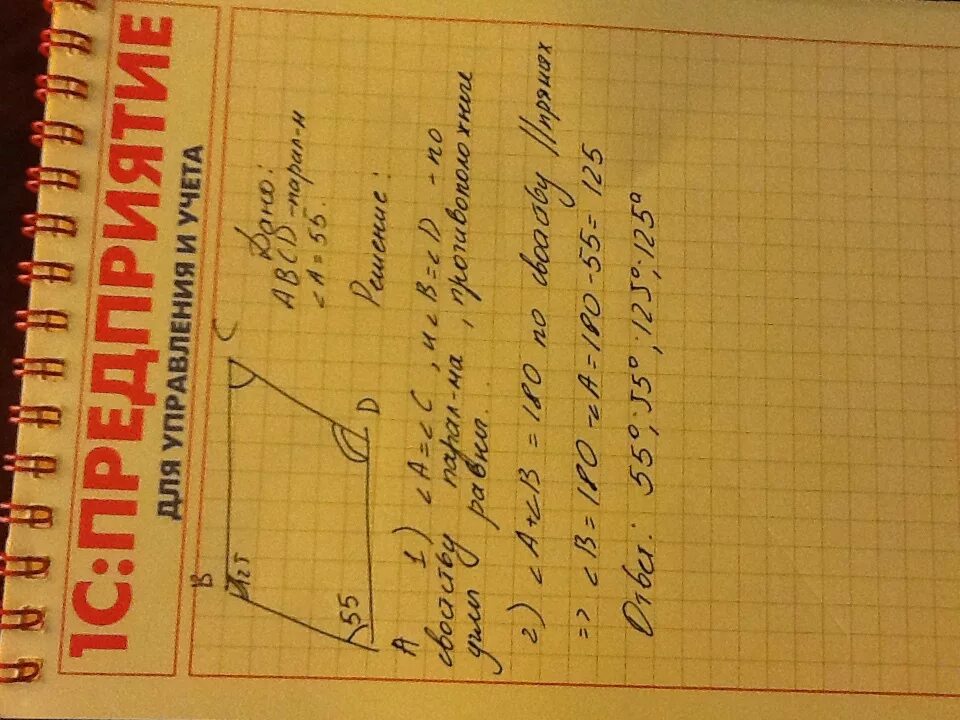 1С:ПРЕДПРИЯТИЕ
ДЛЯ УПРАВЛЕНИЯ И УЧЕТА
B
C
125
55
A
D
Дано:
ABCD -парал-м
<A = 55.
Решение:
1) <A = <C, и <B = <D - по
свойству парал-ма, противоположные
углы равны.
2) <A + <B = 180 по свойству // прямых
=> <B = 180 - <A = 180 - 55 = 125
Ответ: 55°, 55°, 125°, 125°